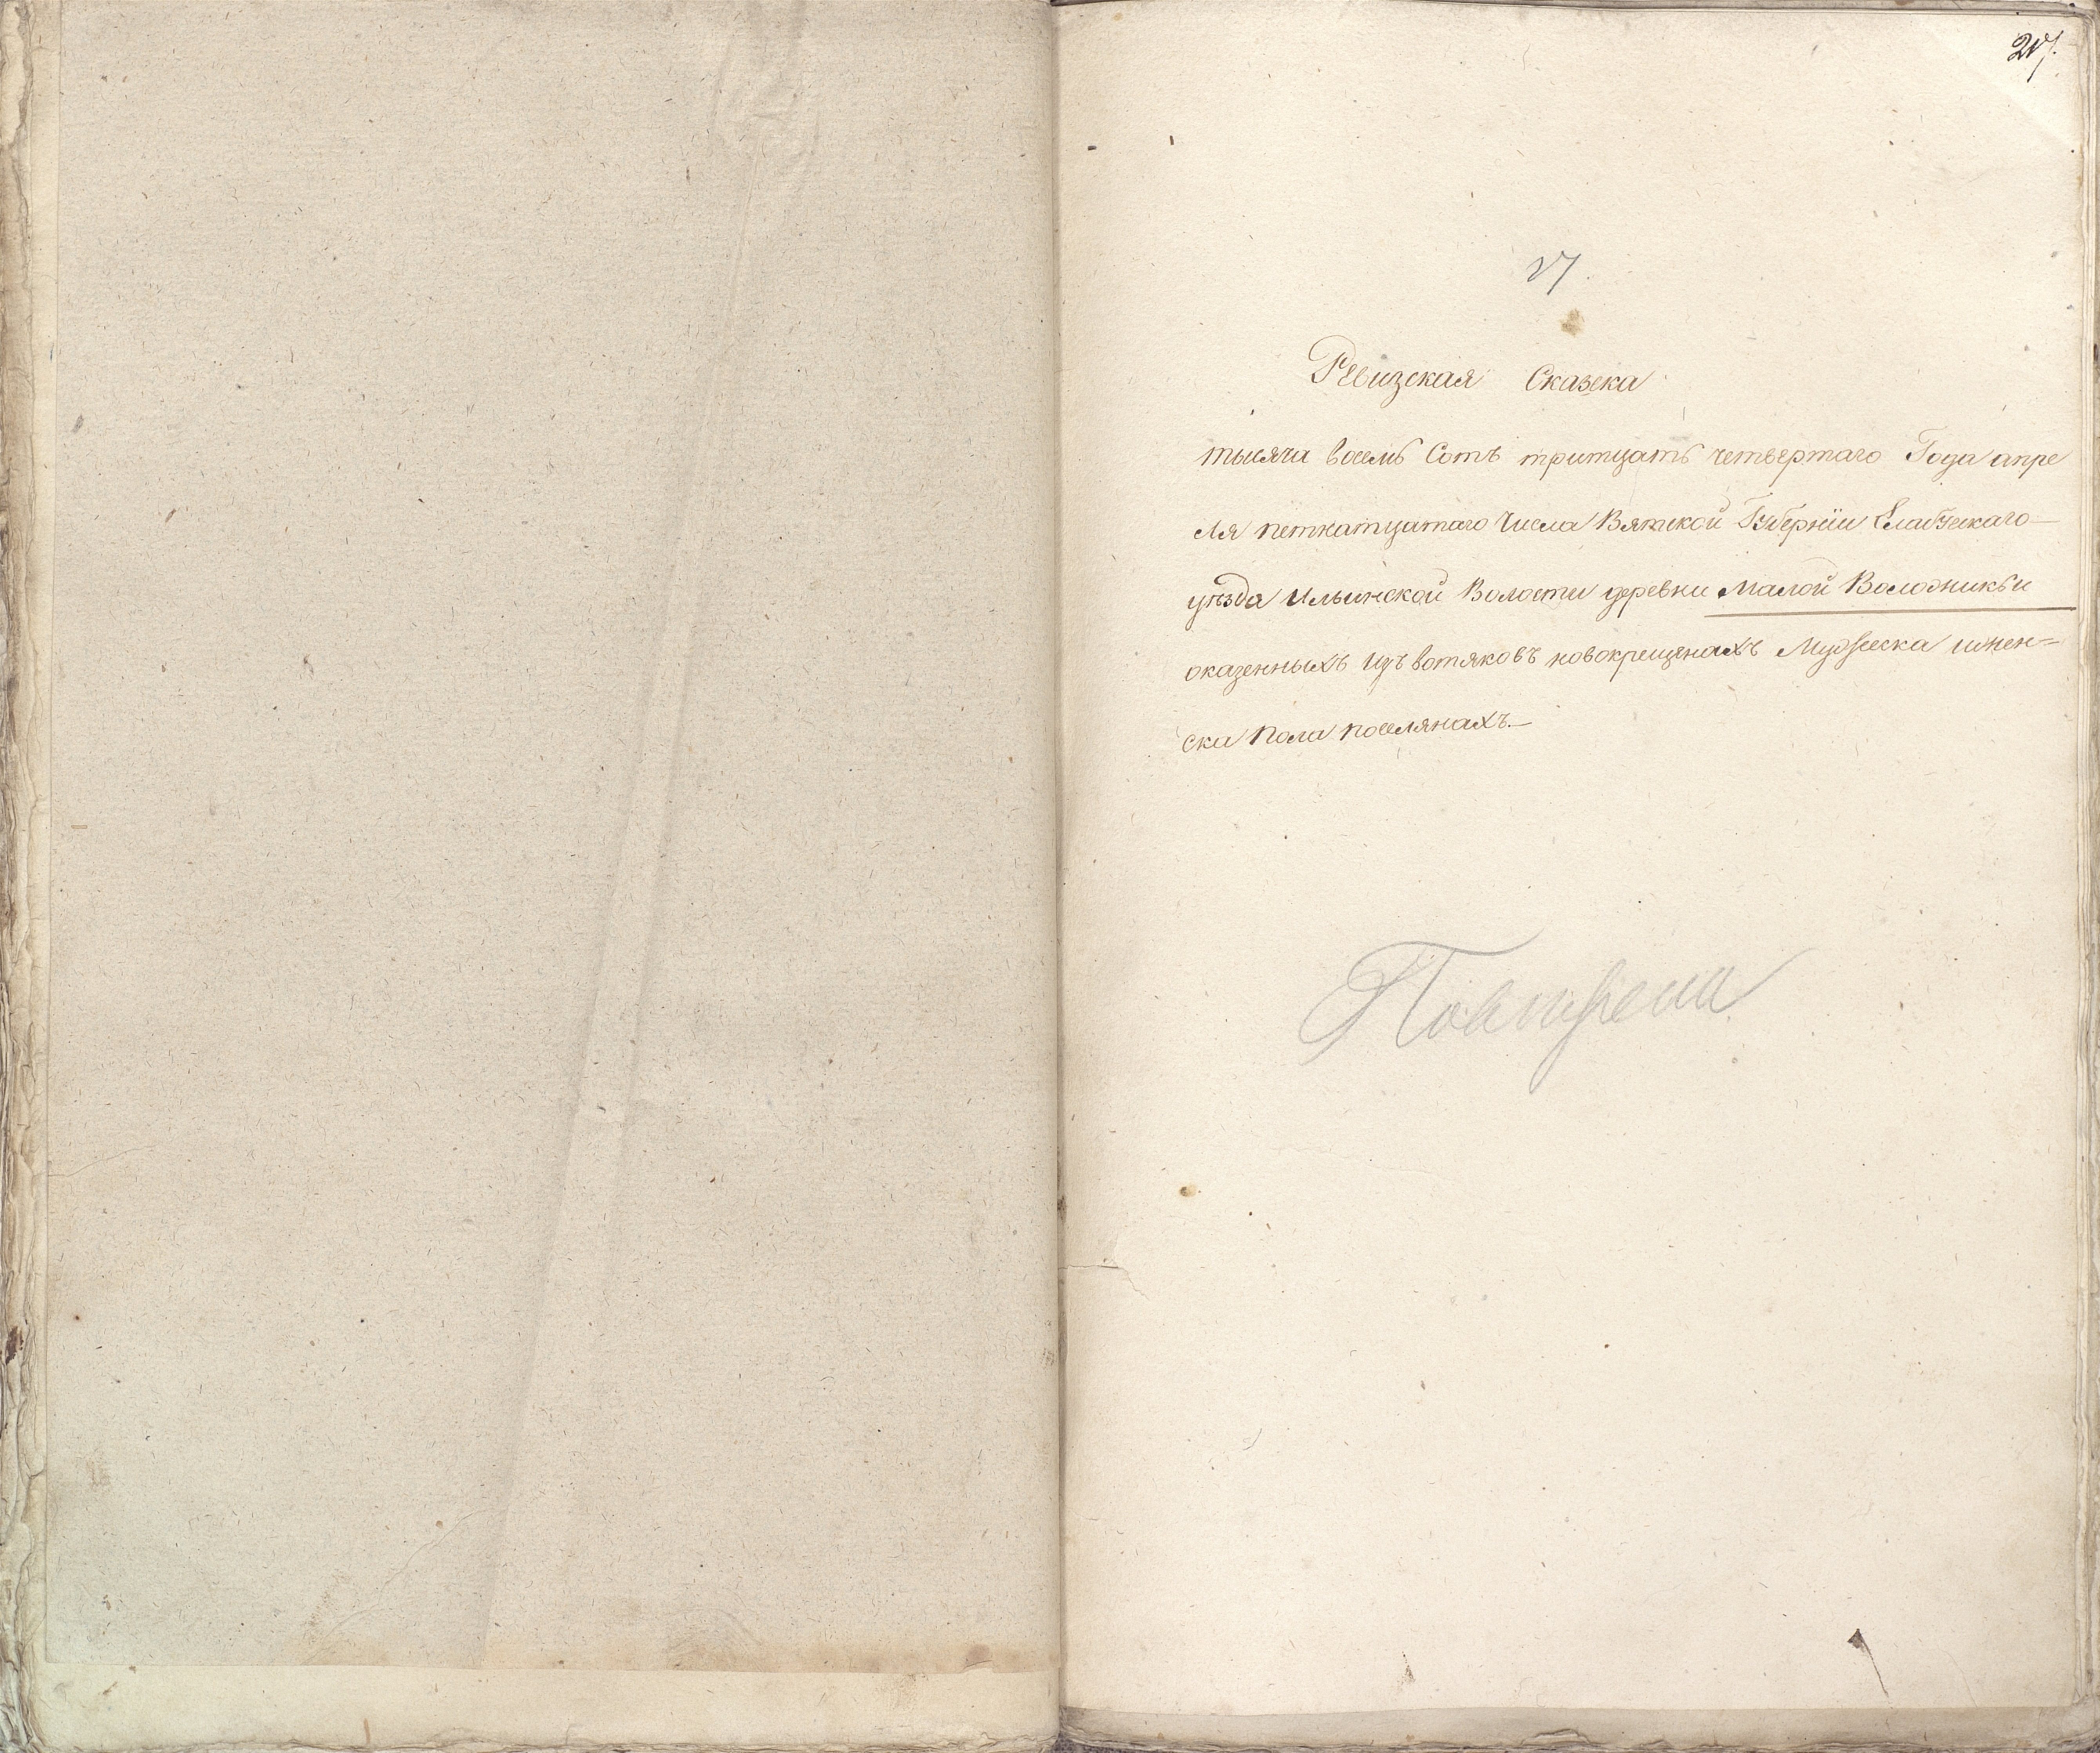 217.
17.
Ревизская Сказка
тысяча восемь Сотъ тритцать четвертаго Года апре
ля петнатцатаго Числа Вятской Губернїи Елабужскаго
уѣзда Ильинской Волости деревни Малой Воложикьи
оказенныхъ изъ вотяковъ новокрещенахъ Мужеска и жен=
ска Пола поселянахъ.